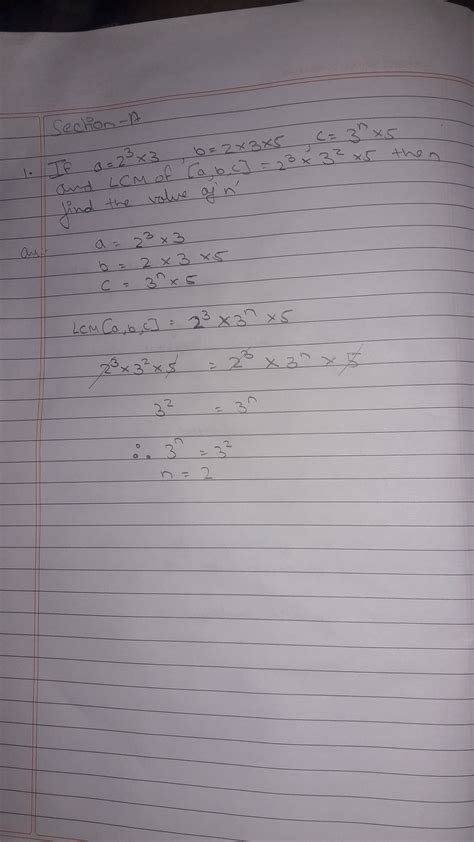 Section-A
1. If a=2³×3, b=2×3×5, c=3ⁿ×5
and LCM of [a,b,c] = 2³×3²×5 then
find the value of 'n'
an:- a = 2³×3
b = 2×3×5
c = 3ⁿ×5
LCM[a,b,c] = 2³×3ⁿ×5
2³×3²×5 = 2³×3ⁿ×5
3² = 3ⁿ
∴ 3ⁿ = 3²
n = 2